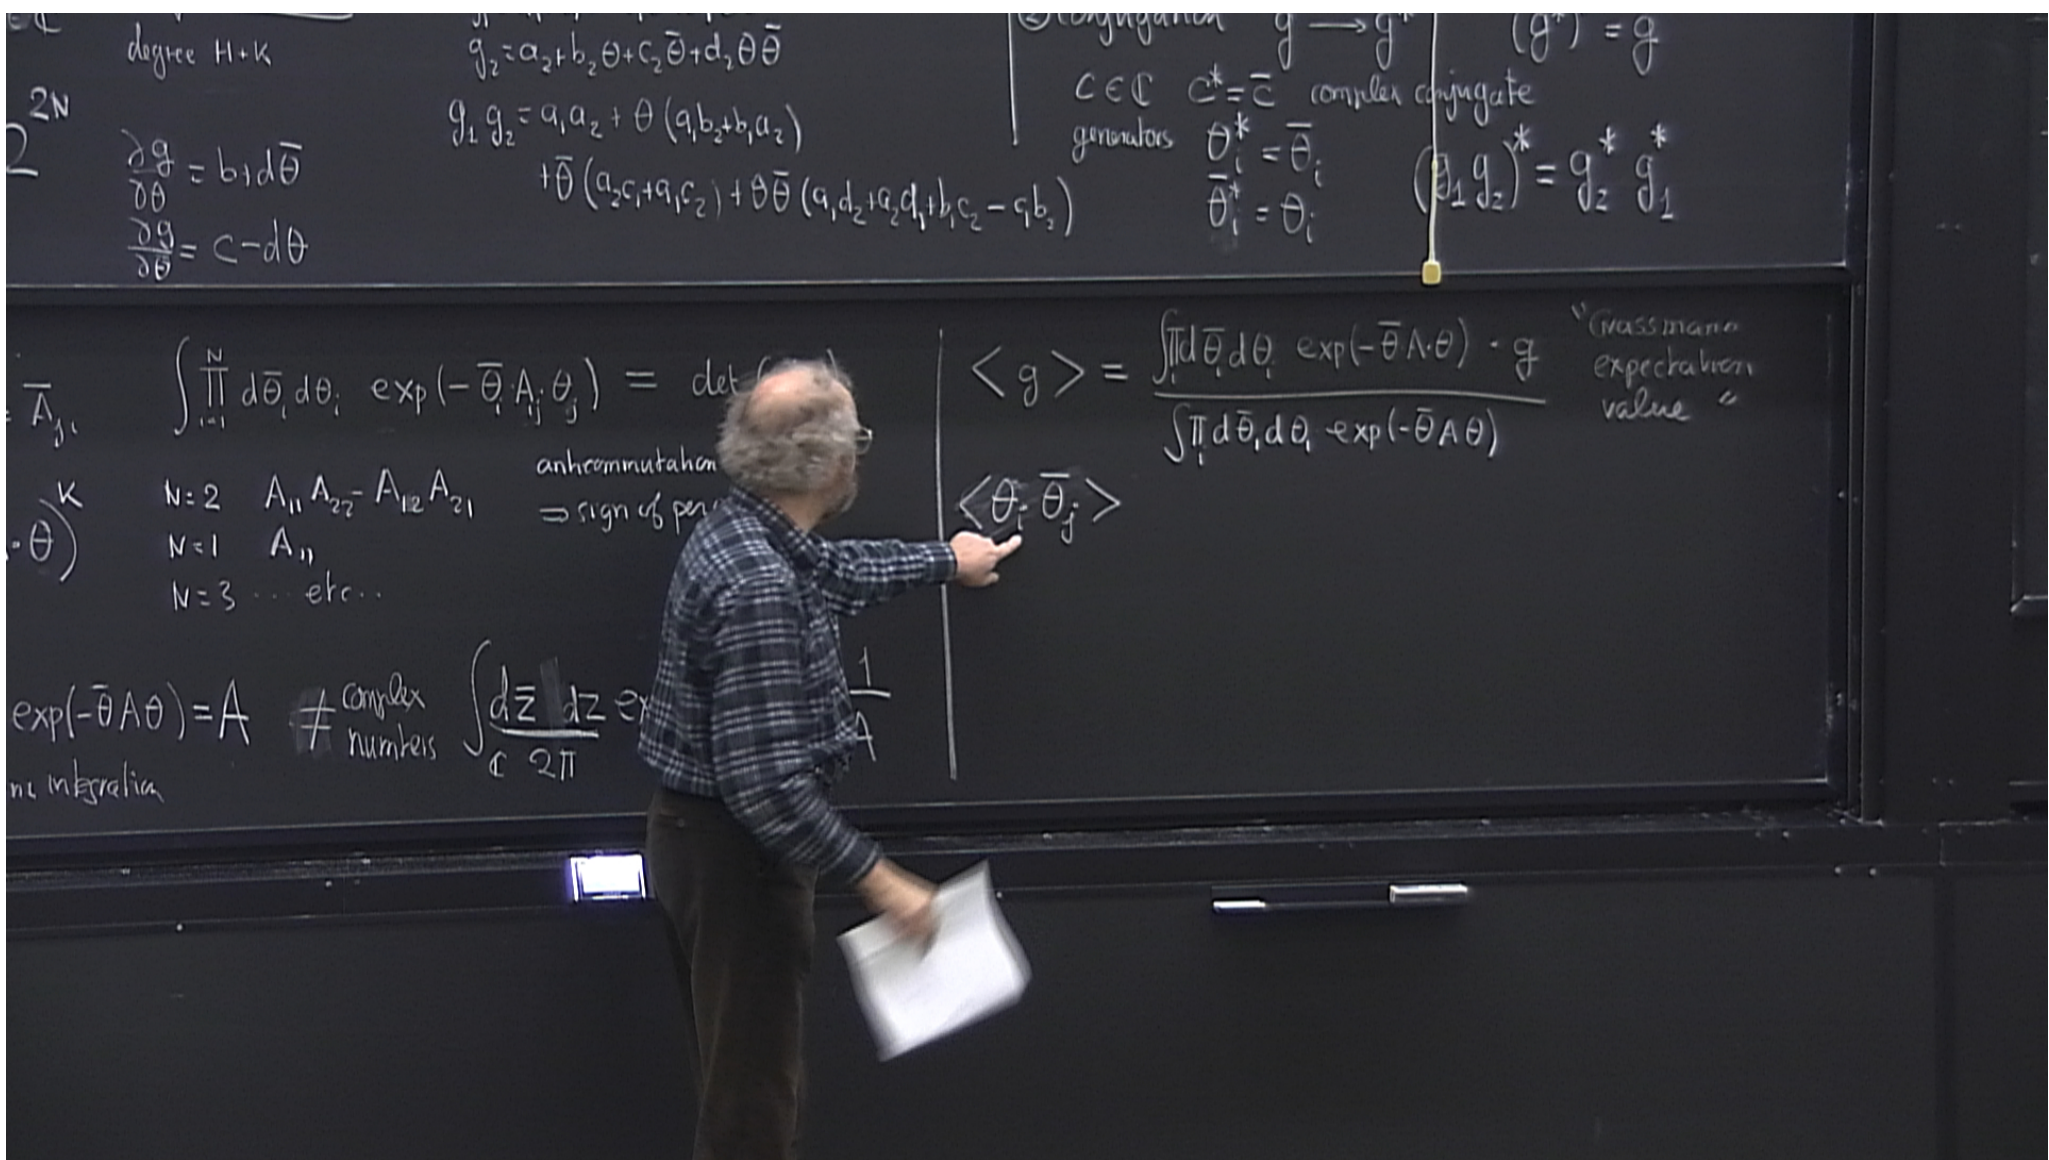 degree H+K
2^{2N}
∂g/∂θ = b+dθ̄
∂g/∂θ̄ = c-dθ
g₂=a₂+b₂θ+c₂θ̄+d₂θθ̄
g₁g₂=a₁a₂+θ(a₁b₂+b₁a₂)
+θ̄(a₂c₁+a₁c₂)+θθ̄(a₁d₂+a₂d₁+b₁c₂-c₁b₂)
conjugation g → g* (g*)* = g
c∈ℂ c*=c̄ complex conjugate
generators θᵢ* = θ̄ᵢ
θ̄ᵢ* = θᵢ
(g₁g₂)* = g₂* g₁*
= Āⱼᵢ
·θ)^K
∫ ∏_{i=1}^{N} dθ̄ᵢ dθᵢ exp(-θ̄ᵢ Aᵢⱼ θⱼ) = det(
N=2 A₁₁A₂₂-A₁₂A₂₁
N=1 A₁₁
N=3 ... etc..
anticommutation
⇒ sign of per
exp(-θ̄Aθ)=A ≠ complex numbers ∫_ℂ dz̄ dz/2π ex 1/A
integration
<g> = ∫∏ᵢdθ̄ᵢdθᵢ exp(-θ̄A·θ)·g / ∫∏ᵢdθ̄ᵢdθᵢ exp(-θ̄Aθ)
"Grassmann
expectation
value"
<θᵢ θ̄ⱼ>